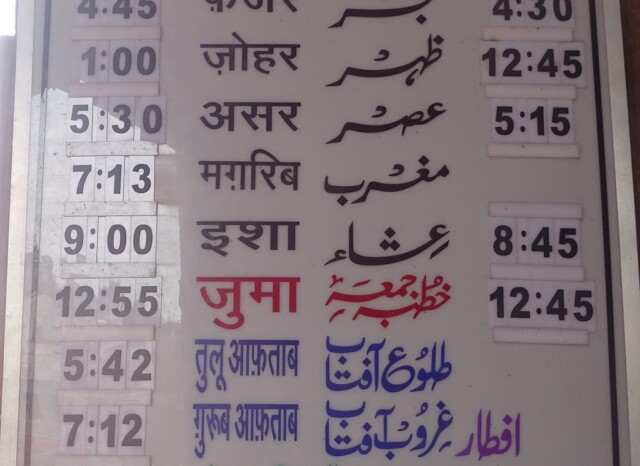 4:45 फ़जर فجر 4:30
1:00 ज़ोहर ظہر 12:45
5:30 असर عصر 5:15
7:13 मग़रिब مغرب
9:00 इशा عِشاء 8:45
12:55 जुमा خطبہ جمعہ 12:45
5:42 तुलू आफ़ताब طلوع آفتاب
7:12 ग़ुरूब आफ़ताब غروب آفتاب افطار